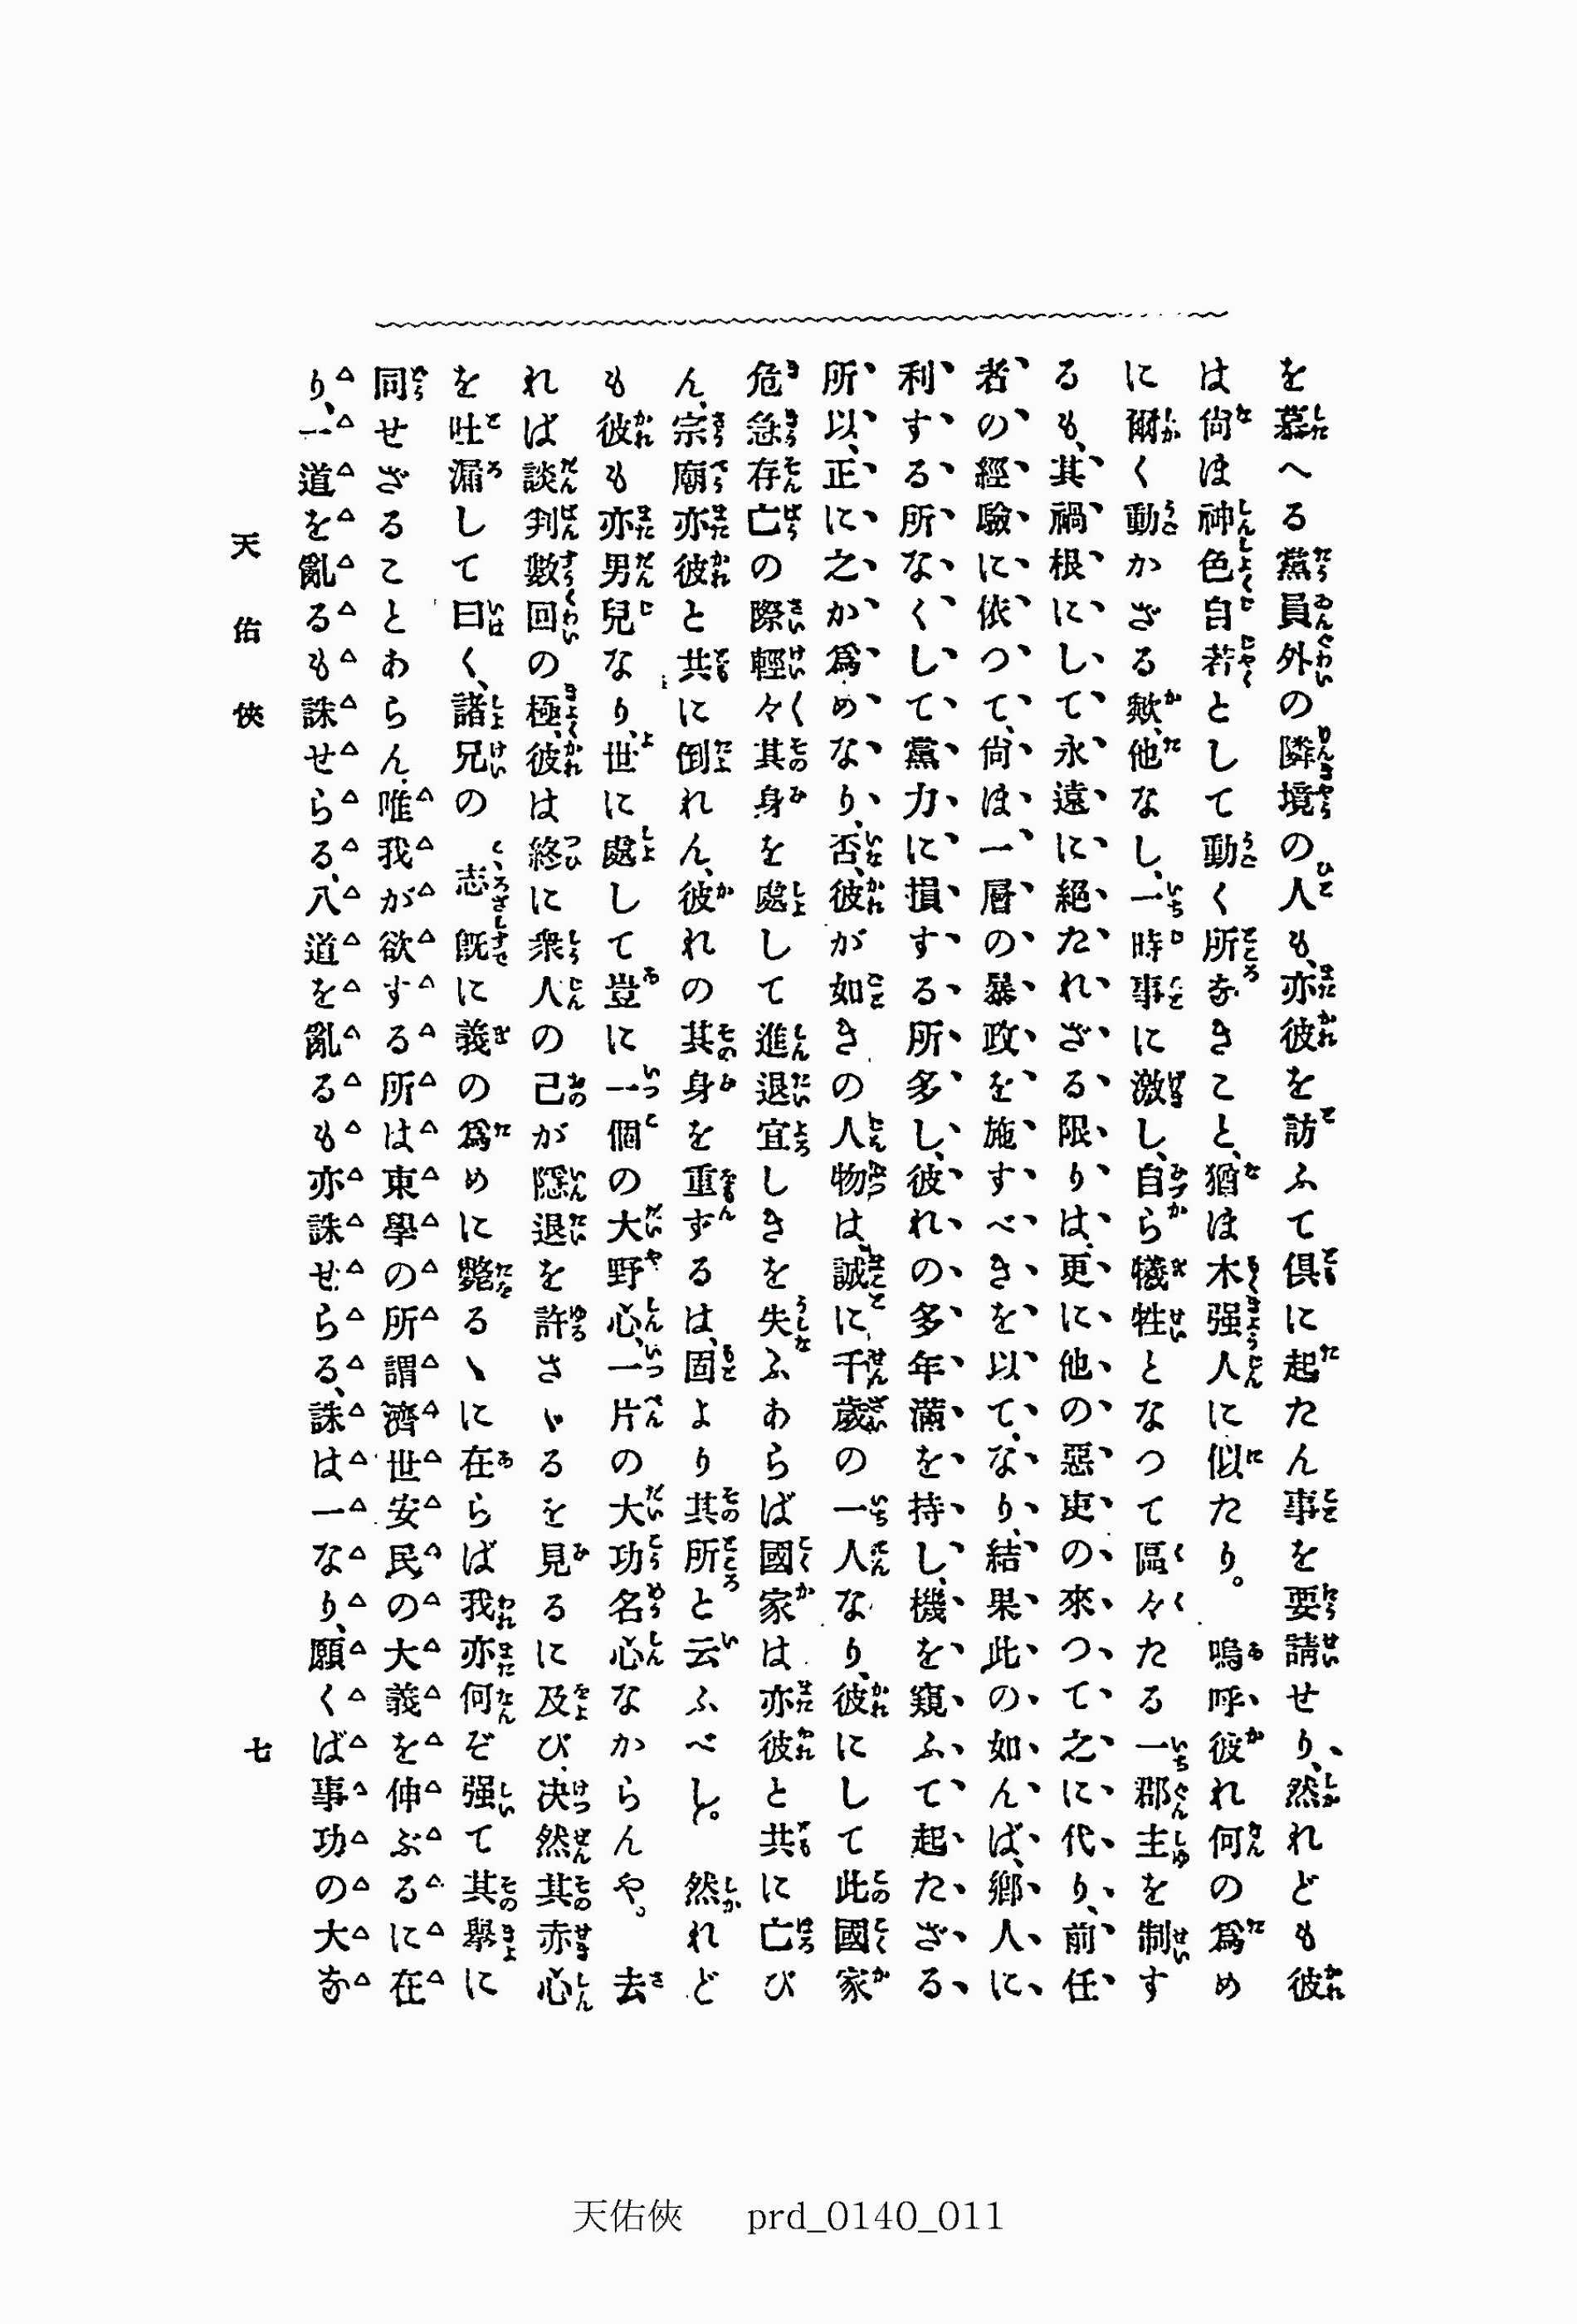 を慕へる黨員外の隣境の人も、亦彼を訪ふて倶に起たん事を要請せり、然れども彼
は尙ほ神色自若として動く所なきこと、猶ほ木强人に似たり。嗚呼彼れ何の爲め
に爾く動かざる歟、他なし、一時事に激し、自ら犧牲となつて區々たる一郡主を制す
るも、其禍根にして永遠に絕たれざる限りは、更に他の惡吏の來つて之に代り、前任
者の經驗に依つて、尙ほ一層の暴政を施すべきを以て、なり、結果此の如んば、鄕人に
利する所なくして黨力に損する所多し、彼れの多年滿を持し、機を窺ふて起たざる
所以、正に之か爲めなり、否、彼が如きの人物は、誠に千歲の一人なり、彼にして此國家
危急存亡の際輕々其身を處して進退宜しきを失ふあらば國家は亦彼と共に亡び
ん、宗廟亦彼と共に倒れん、彼れの其身を重ずるは、固より其所と云ふべし。然れど
も彼も亦男兒なり、世に處して豈に一個の大野心、一片の大功名心なからんや。去
れば談判數回の極、彼は終に衆人の己が隱退を許さゞるを見るに及び、决然其赤心
を吐漏して曰く、諸兄の志既に義の爲めに斃るゝに在らば我亦何ぞ强て其擧に
同せざることあらん、唯我が欲する所は東學の所謂濟世安民の大義を伸ぶるに在
り、一道を亂るも誅せらる、八道を亂るも亦誅せらる、誅は一なり、願くば事功の大な
天佑俠
七
天佑俠 prd_0140_011